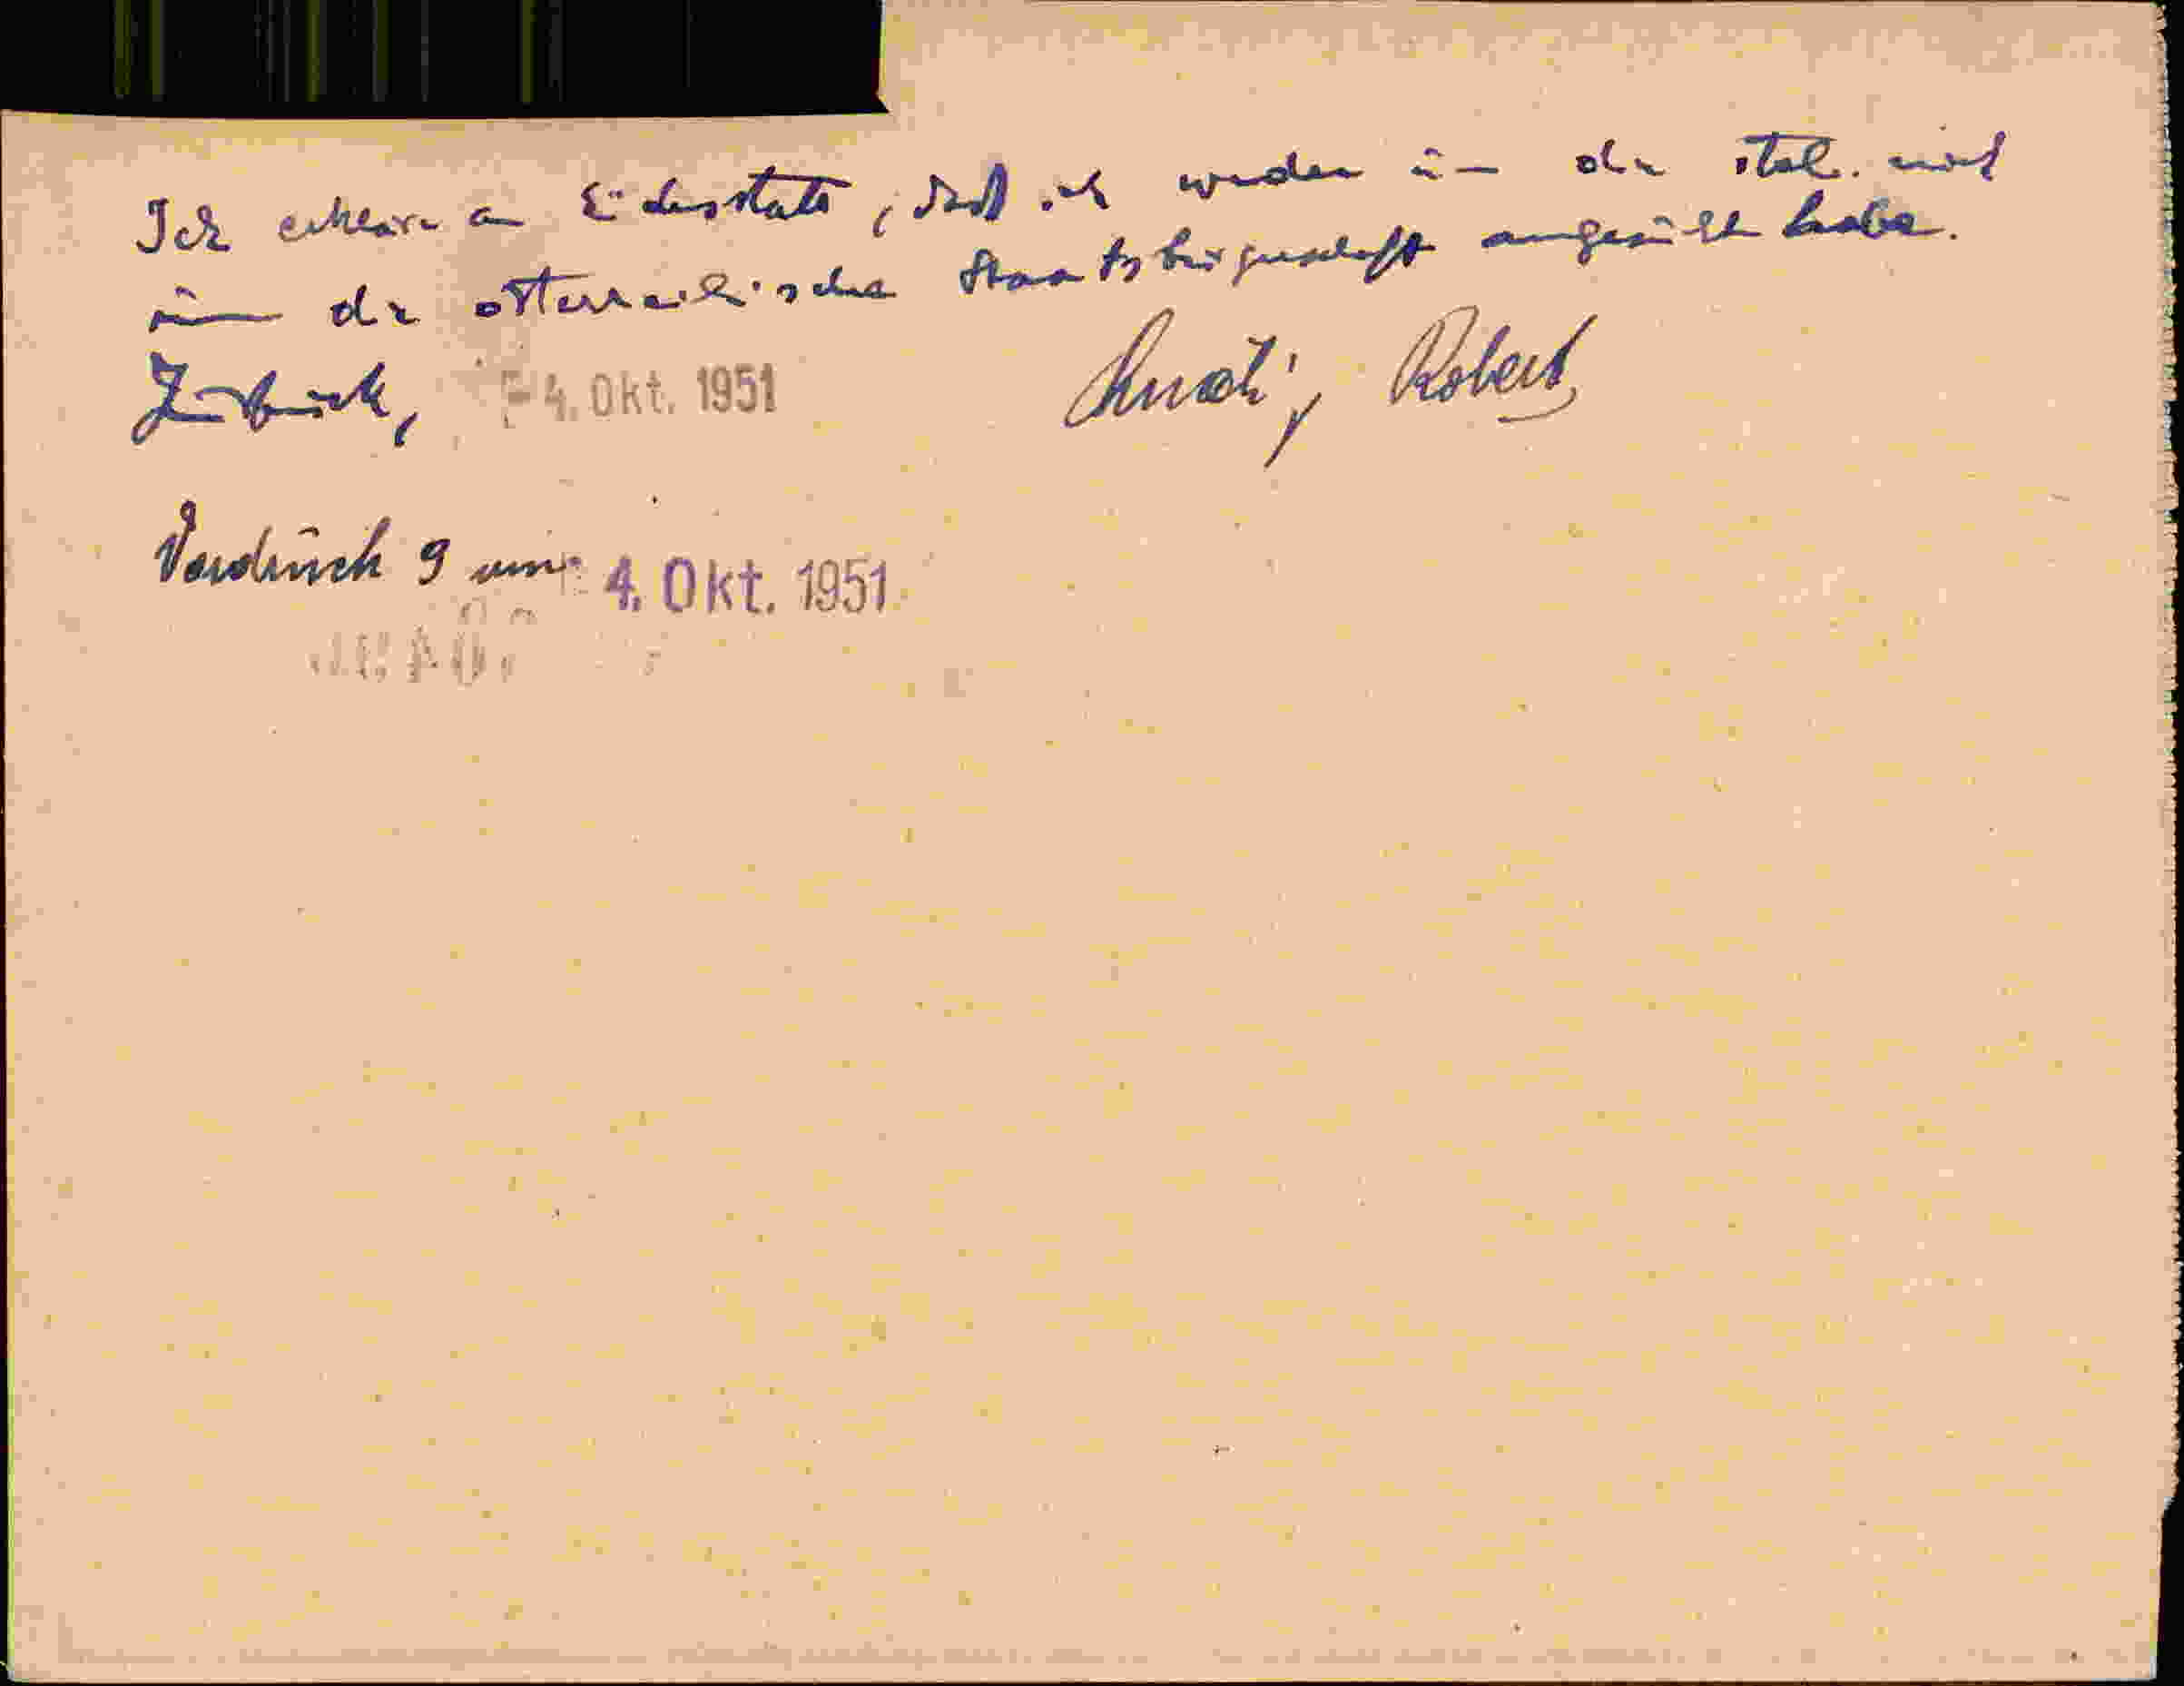 Ich erkläre an Eidesstatt, daß ich weder um die ital. noch
um die österreichische Staatsbürgerschaft angesucht habe.
Innsbruck, - 4. Okt. 1951 Robert
Vordruck 9 vom 4. Okt. 1951